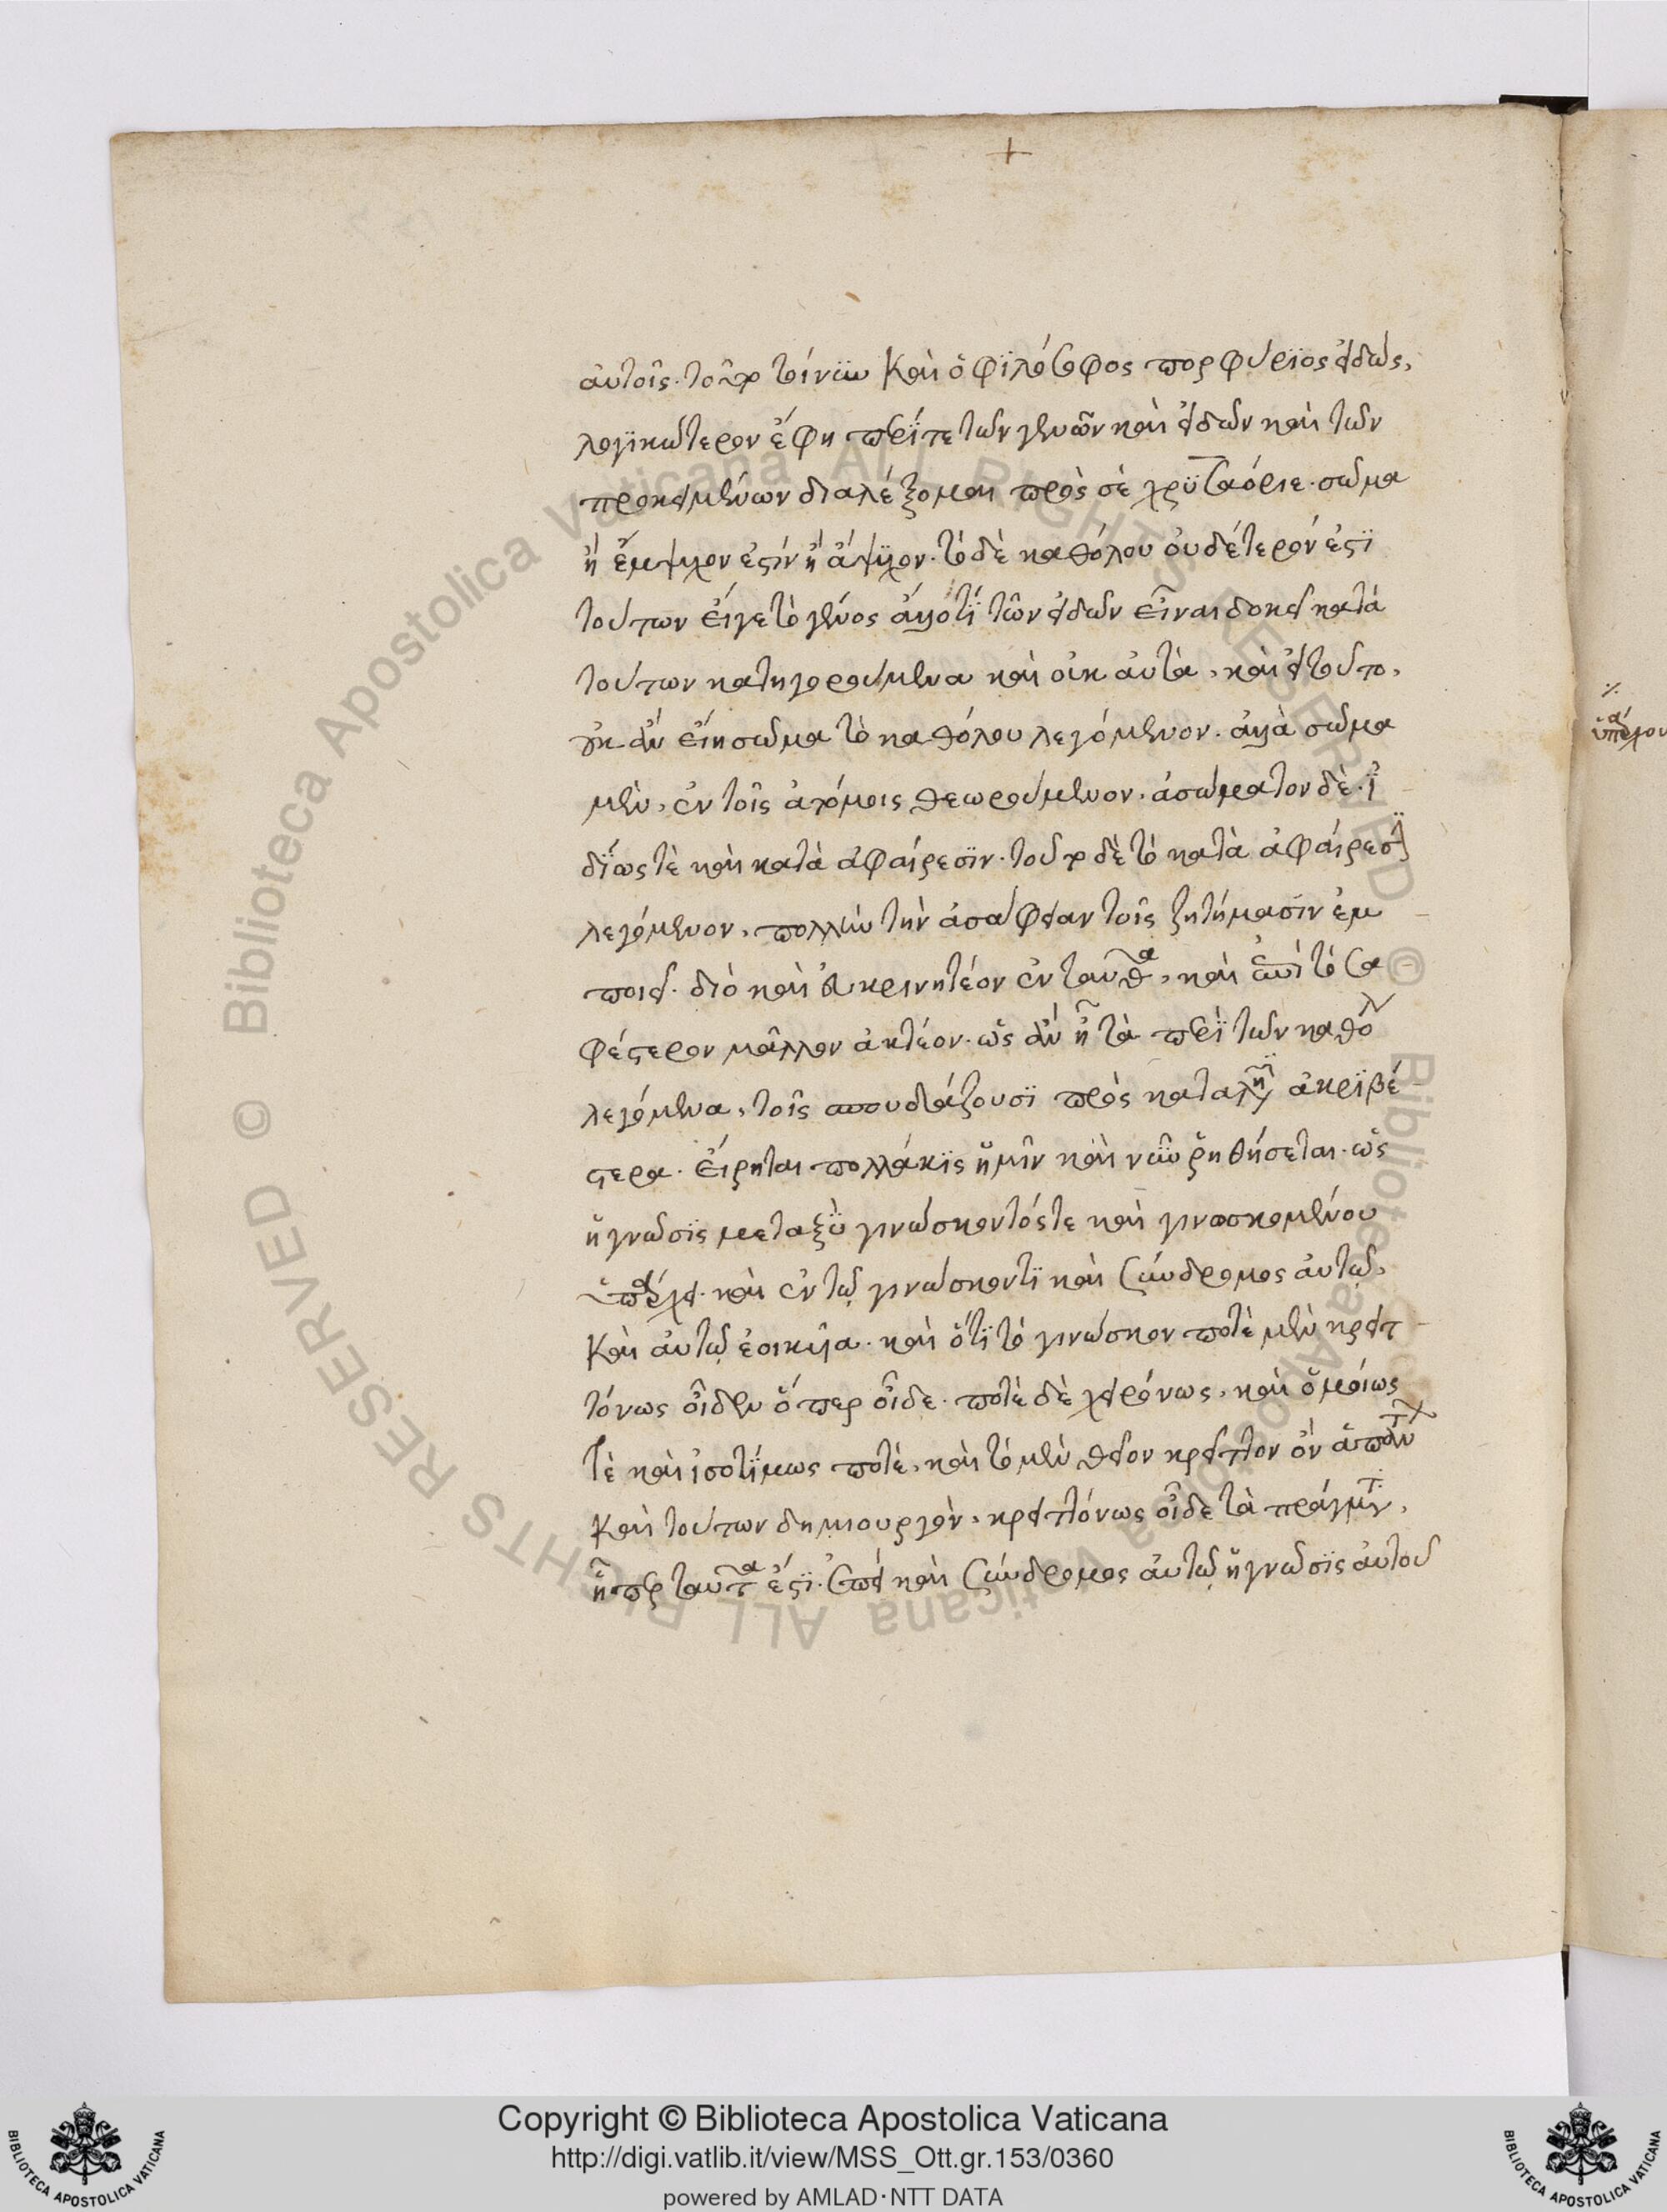 +
αὐτοῖς. τοῦτο τοίνυν καὶ ὁ φϊλόσοφος πορφύρϊος εἰδώς,
λογϊκώτερον ἔφη περί τε τῶν γενῶν καὶ εἰδῶν καὶ τῶν
προκειμένων διαλέξομαι πρὸς σὲ χρϋσαόριε. σῶμα
ἢ ἔμψυχον ἐστὶν ἢ ἄψυχον. τὸ δὲ καθόλου οὐδέτερόν ἐστϊ
τούτων εἴγε τὸ γένος ἄλλό τϊ τῶν εἰδῶν εἶναι δοκεῖ κατὰ
τούτων κατηγορούμενα καὶ οὐκ αὐτὰ, καὶ εἰ τοῦτο,
οὐκ ἂν εἴη σῶμα τὸ καθόλου λεγόμενον. ἀλλὰ σῶμα
μὲν, ἐν τοῖς ἀτόμοις θεωρούμενον. ἀσώματον δὲ. ἰ
δΐως τὲ καὶ κατὰ ἀφαίρεσϊν. τοῦτο δὲ τὸ κατὰ ἀφαίρεσϊν
λεγόμενον, πολλὴν τὴν ἀσάφειαν τοῖς ζητήμασϊν ἐμ
ποιεῖ. διὸ καὶ διευκρινητέον ἐνταῦθα, καὶ ἐπὶ τὸ σα
φέστερον μᾶλλον ἀκτέον. ὡς ἂν ᾖ τὰ περὶ τῶν καθόλου
λεγόμενα, τοῖς σπουδάζουσϊ πρὸς κατάληψϊν ἀκρϊβέ
στερα. εἴρηται πολλάκϊς ἡμῖν καὶ νῦν ῥηθήσεται. ὡς
ἡ γνῶσϊς μεταξϋ γινώσκοντός τε καὶ γινωσκομένου
ὑπάρχει. καὶ ἐν τῷ γινώσκοντϊ καὶ σύνδρομος αὐτῷ,
καὶ αὐτῷ ἐοικυῖα. καὶ ὅτϊ τὸ γινῶσκον ποτὲ μὲν κρειτ
τόνως οἶδεν ὅπερ οἶδε. ποτὲ δὲ χειρόνως, καὶ ὁμοίως
τὲ καὶ ἰσοτΐμως ποτὲ, καὶ τὸ μὲν θεῖον κρεῖττον ὂν ἁπάντων
καὶ τούτων δημιουργὸν, κρειττόνως οἶδε τὰ πράγματα,
ἤπερ ταῦτα ἐστϊ. ἐπεὶ καὶ σύνδρομος αὐτῷ ἡ γνῶσϊς αὐτοῦ
Copyright © Biblioteca Apostolica Vaticana
http://digi.vatlib.it/view/MSS_Ott.gr.153/0360
powered by AMLAD·NTT DATA
BIBLIOTECA APOSTOLICA VATICANA
BIBLIOTECA APOSTOLICA VATICANA
© Biblioteca Apostolica Vaticana ALL RIGHTS RESERVED © Biblioteca Apostolica Vaticana ALL RIGHTS RESERVED